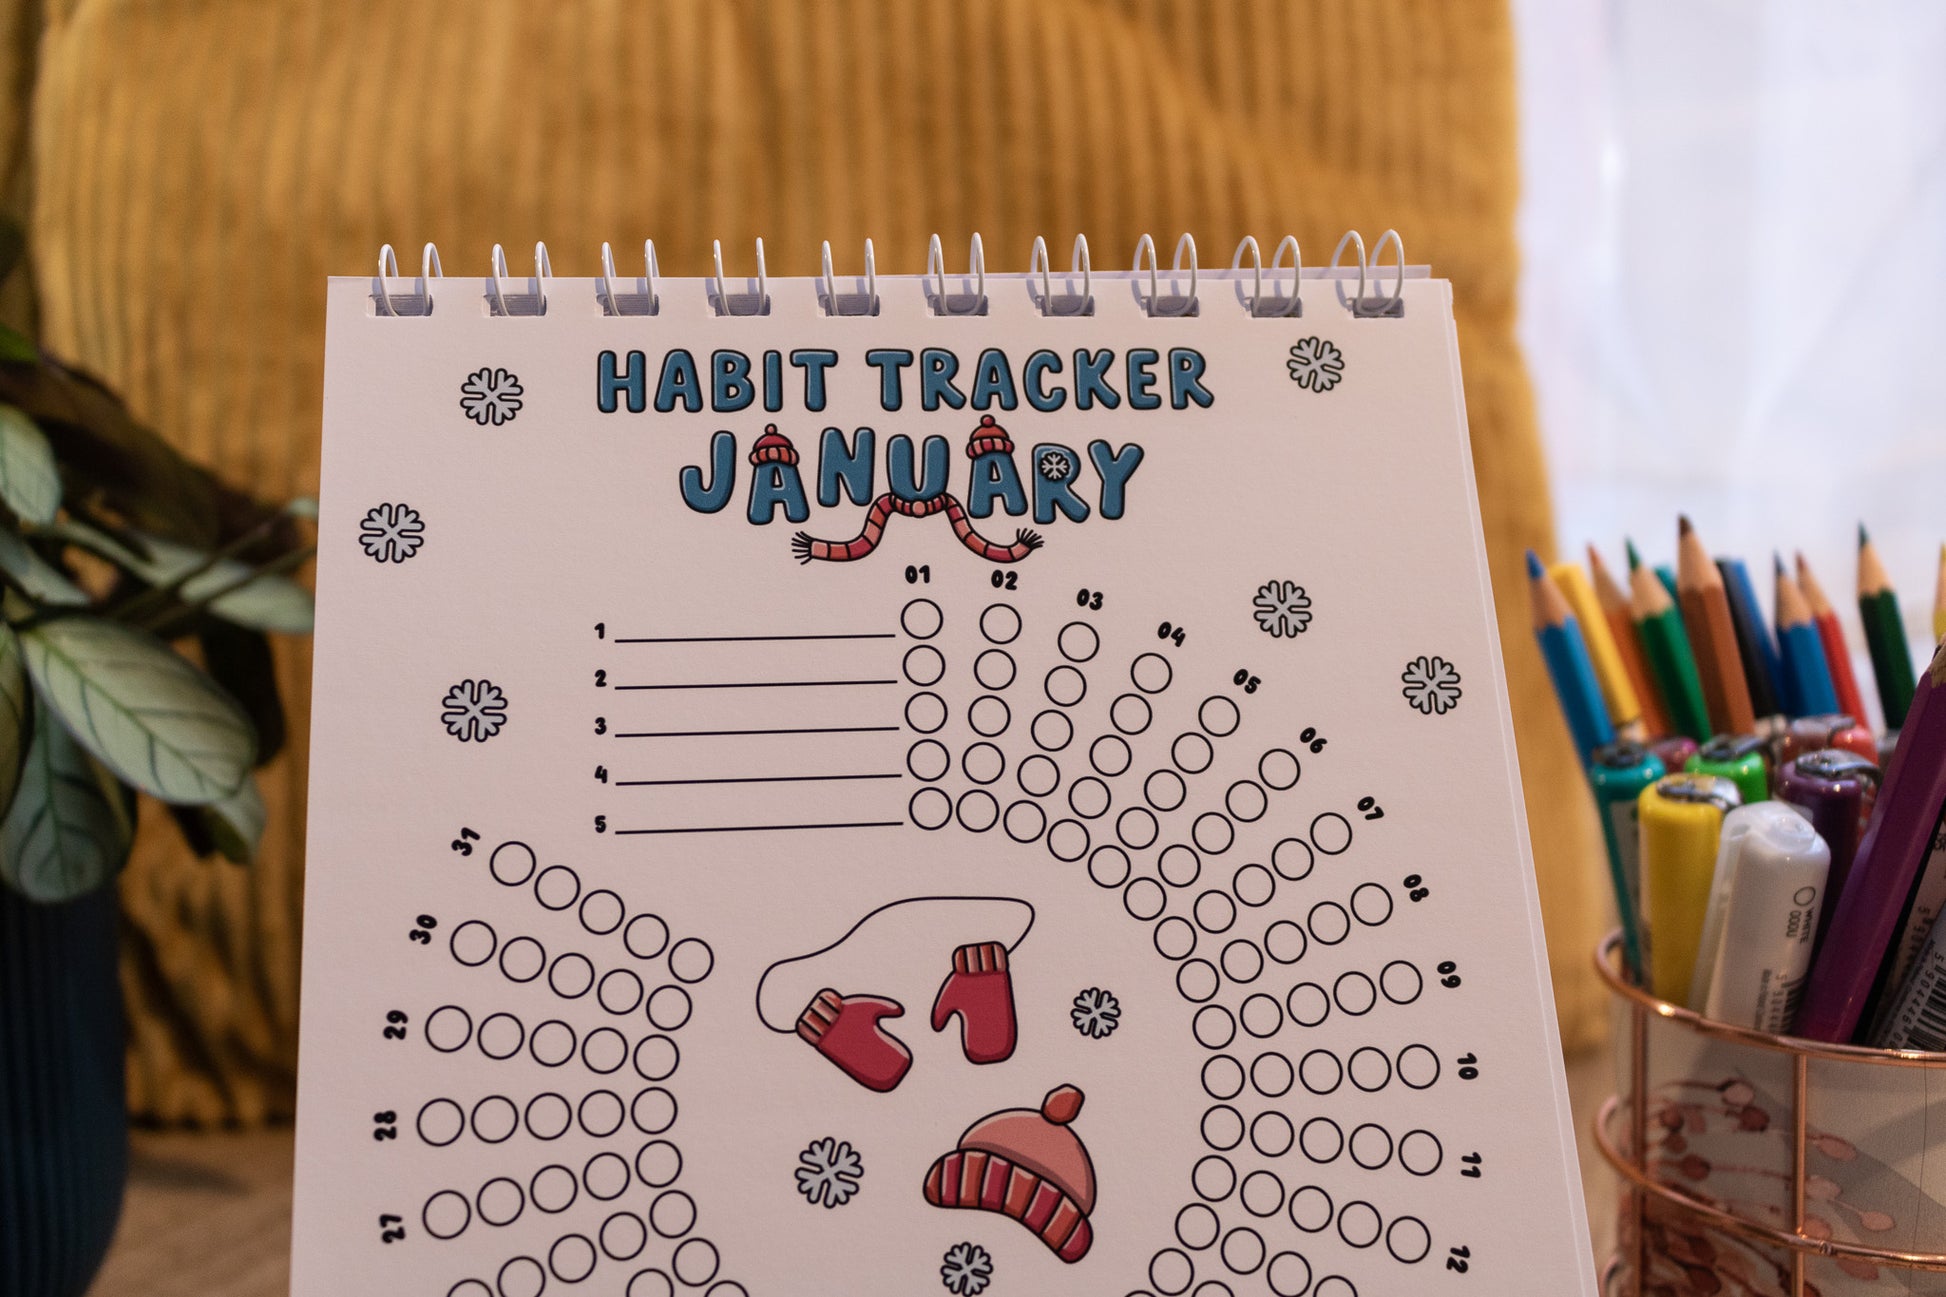 HABIT TRACKER
JANUARY
01
02
03
04
05
06
07
08
09
10
11
12
1
2
3
4
5
31
30
29
28
27
WHITE
0001